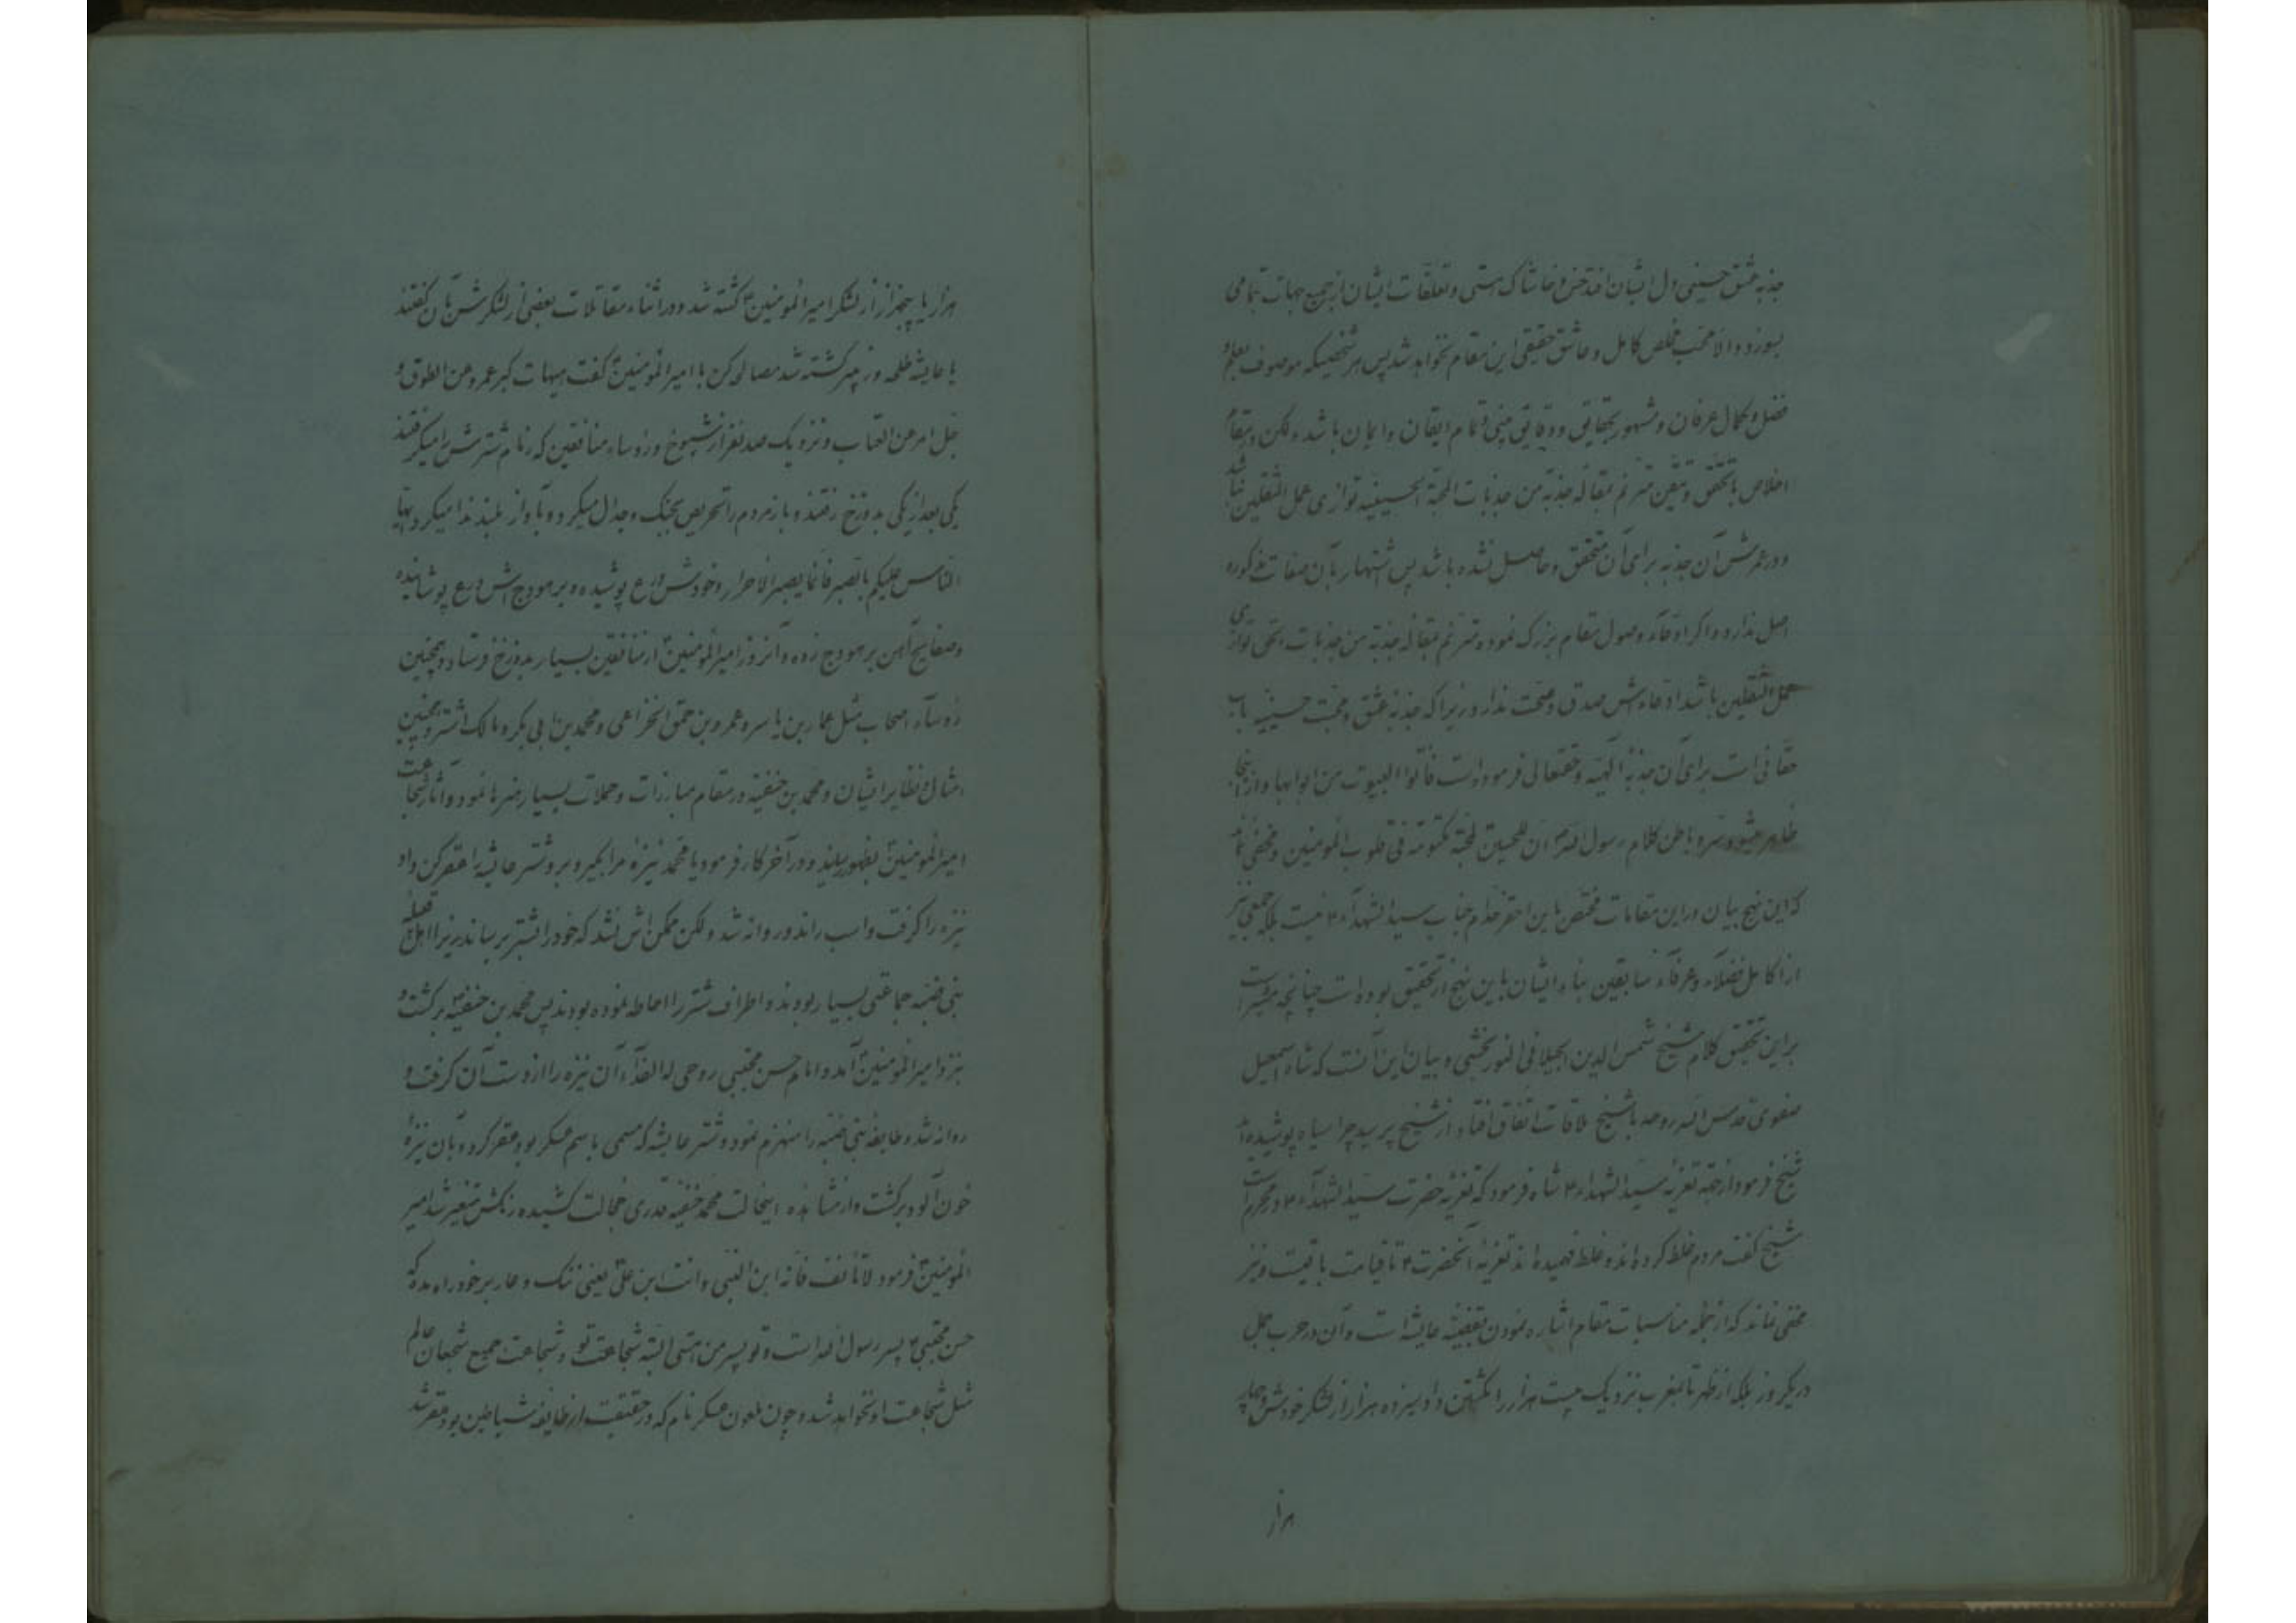 جذبه عشق حسینی دل ایشان انداختن و خاشاک هستی و تعلقات ایشان از جمیع جهات بتمامی
بسوزد والا محب مخلص کامل و عاشق حقیقی این مقام نخواهد شد پس هر شخصیکه موصوف بعلم و
فضل و کمال عرفان و مشهور بحقایق و دقایق و تمام ایقان و ایمان باشد ولکن در مقام
اخلاص با تحقق و تیقن مترنم بمقاله جذبة من جذبات المحبة الحسینیه توازی عمل الثقلین نباشد
و در عمرش آن جذبه برای آن متحقق و حاصل نشده باشد پس اشتهار بآن صفات مذکوره
اصل ندارد و اگر ادعاء وصول مقام بزرگ نموده مترنم بمقاله جذبة من جذبات الحق توازی
عمل الثقلین باشد ادعاءش صدق و صحت ندارد زیرا که جذبه عشق و محبت حسینیه باب
حقانی است برای آن جذبه الهیه و حقتعالی فرموده است فأتوا البیوت من ابوابها و از اینجا
ظاهر میشود سر و باطن کلام رسول الله ان للحسین لمحبة مکتومة فی قلوب المؤمنین و مخفی نماند
که این نهج بیان در این مقامات مختص باین احقر خدام جناب سید الشهداء نیست بلکه جمعی نیز
از اکامل فضلاء و عرفاء سابقین بناء ایشان باین نهج از تحقیق بوده است چنانچه
براین تحقیق کلام شیخ شمس الدین الجیلانی النوربخشی و بیان این آنست که شاه اسمعیل
صفوی قدس الله روحه با شیخ ملاقات اتفاق افتاد از شیخ پرسید چرا سیاه پوشیده‌ای
شیخ فرمود از جهة تعزیه سید الشهداء شاه فرمود که تعزیه حضرت سید الشهداء در محرم است
شیخ گفت مردم غلط کرده‌اند و غلط فهمیده‌اند تعزیه آنحضرت تا قیامت باقیست و نیز
مخفی نماند که از جمله مناسبات مقام اشاره نمودن بقضیه عایشه است و آن در حرب جمل
در یکروز بلکه از ظهر تا بمغرب نزدیک بیست هزار را بکشتن داد سیزده هزار از لشکر خودش و چهار
هزار
هزار یا پنجهزار از لشکر امیر المؤمنین کشته شد و در اثناء مقاتلات بعضی از لشکرش بآن گفتند
یا عایشه طلحه و زبیر کشته شد مصالحه کن با امیر المؤمنین گفت هیهات کبر عمرو عن الطوق و
جل امر عن العتاب و نزدیک صد نفر از شیوخ و رؤساء منافقین که زمام شترش را میگرفتند
یکی بعد از یکی بدوزخ رفتند و باز مردم را تحریص بجنگ و جدال میکرد و بآواز بلند ندا میکرد ایها
الناس علیکم بالصبر فانما یصبر الاحرار و خودش درع پوشیده و بر هودج‌اش درع پوشانیده
و صفایح آهن بر هودج زده و آنروز امیر المؤمنین از منافقین بسیار بدوزخ فرستاد و همچنین
رؤساء اصحاب مثل عمار بن یاسر و عمرو بن حمق الخزاعی و محمد بن ابی بکر و مالک اشتر و همچنین
امثال و نظایر ایشان و محمد بن حنفیه در مقام مبارزات و حملات بسیار هنرها نمود و آثار شجاعت
امیر المؤمنین بظهور رسانید و در آخر کار فرمود یا محمد نیزه مرا بگیر و برو شتر عایشه را عقر کن و او
نیزه را گرفت و اسب راند و روانه شد ولکن ممکن‌اش نشد که خود را بشتر برساند زیرا اهل قبیله
بنی ضبه جماعتی بسیار بودند و اطراف شتر را احاطه نموده بودند پس محمد بن حنفیه برگشت و
نزد امیر المؤمنین آمد و امام حسن مجتبی روحی له الفداء آن نیزه را از دست آن گرفت و
روانه شد و طایفه بنی ضبه را منهزم نمود و شتر عایشه که مسمی باسم عسکر بود عقر کرد و بآن نیزه
خون آلود برگشت و از مشاهده اینحالت محمد حنفیه قدری خجالت کشیده رنگش متغیر شد امیر
المؤمنین فرمود لا تأنف فانه ابن النبی وانت ابن علی یعنی ننگ و عار بر خود راه مده که
حسن مجتبی پسر رسول الله است و تو پسر من هستی البته شجاعت تو و شجاعت جمیع شجعان عالم
مثل شجاعت او نخواهد شد و چون ملعون عسکر نام که در حقیقت از طایفه شیاطین بود عقر شد